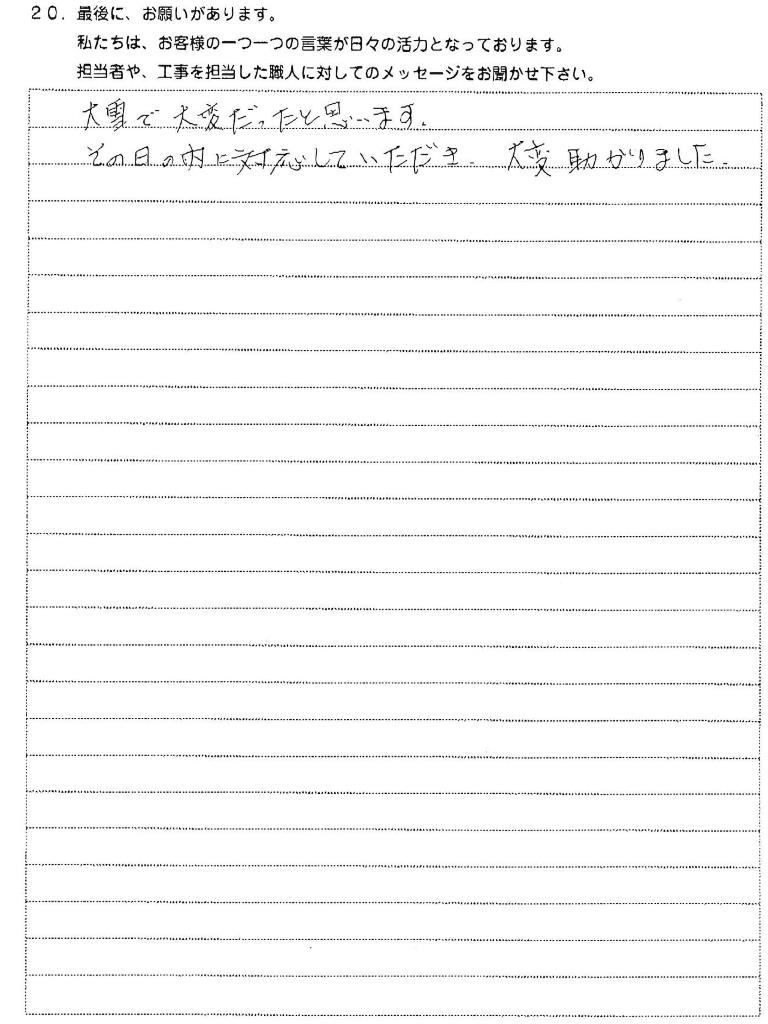 20．最後に、お願いがあります。
私たちは、お客様の一つ一つの言葉が日々の活力となっております。
担当者や、工事を担当した職人に対してのメッセージをお聞かせ下さい。
大雪で大変だったと思います。
その日の内に対応していただき、大変助かりました。